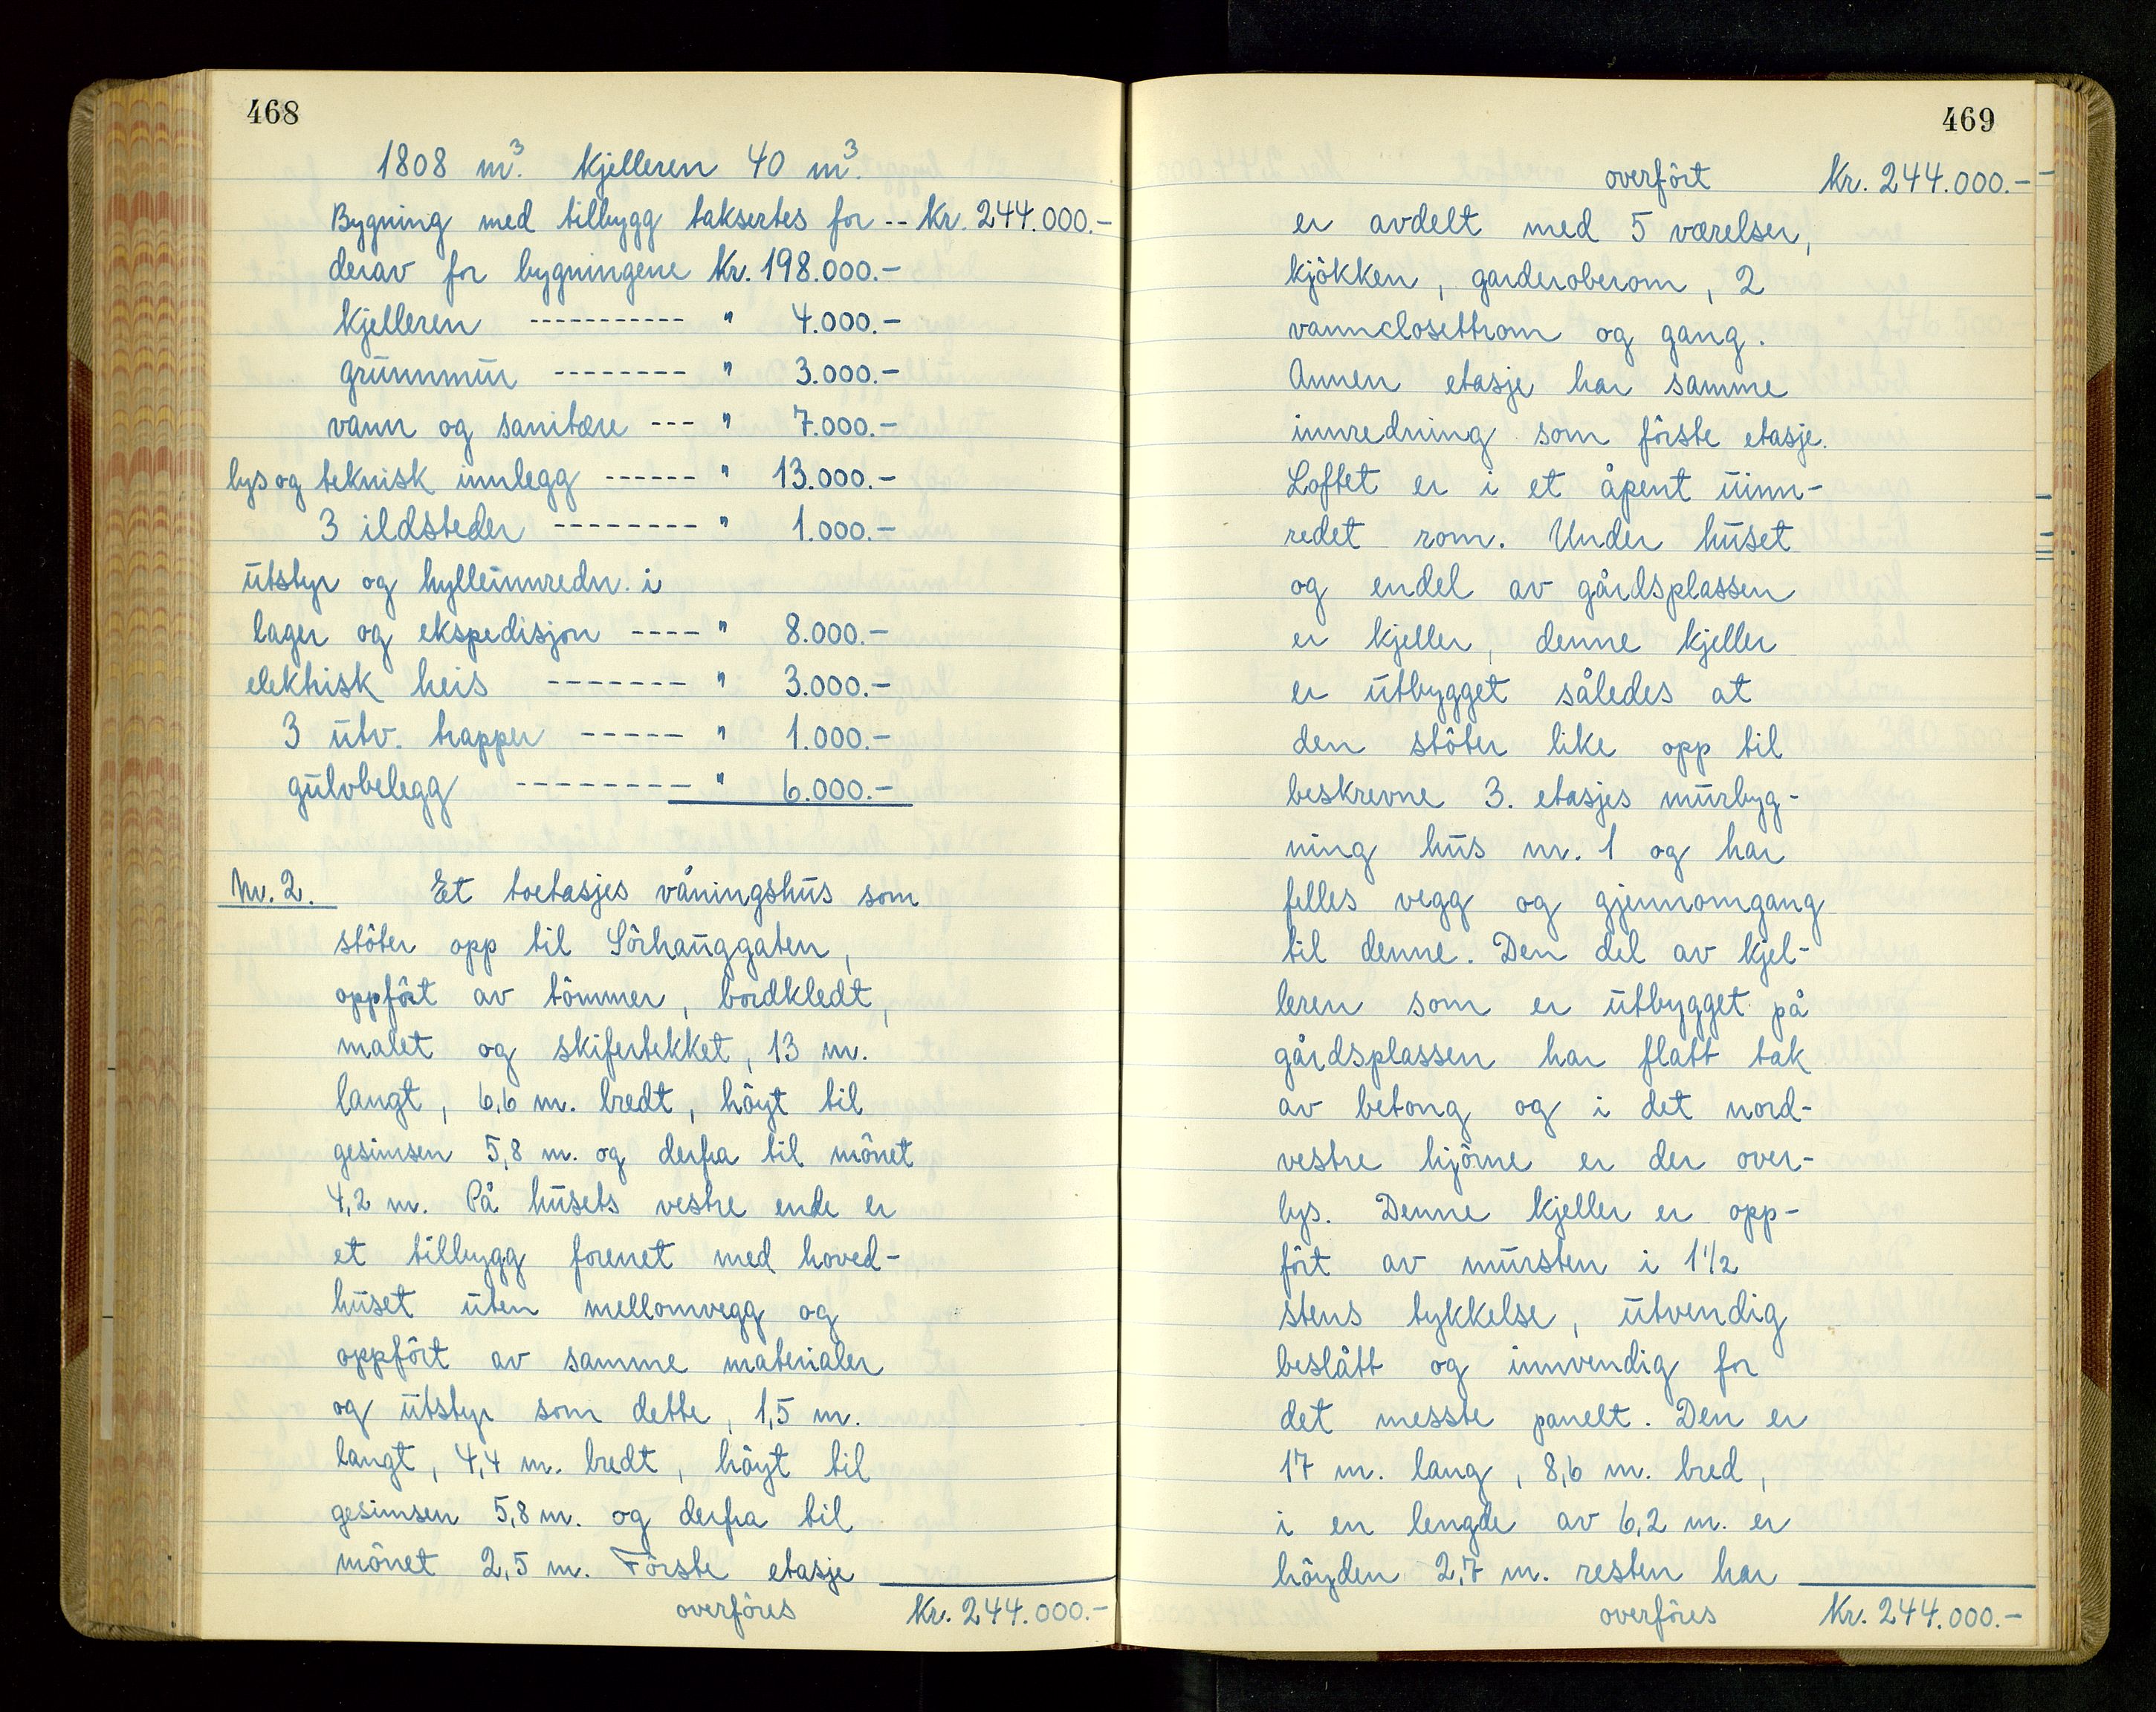 468
1808 m³. Kjelleren 40 m³.
Bygning med tilbygg taksertes for -- Kr. 244.000.-
derav for bygningene Kr. 198.000.-
kjelleren ----------- " 4.000.-
grunnmur -------- " 3.000.-
vann og sanitære --- " 7.000.-
lys og teknisk innlegg ------ " 13.000.-
3 ildsteder -------- " 1.000.-
utstyr og hylleinnredn. i
lager og ekspedisjon ---- " 8.000.-
elektrisk heis ------- " 3.000.-
3 utv. trapper ----- " 1.000.-
gulvbelegg --------- " 6.000.-
Nr. 2. Et toetasjes våningshus som
stöter opp til Sörhauggaten,
oppfört av tömmer, bordkledt,
malet og skifertekket, 13 m.
langt, 6,6 m. bredt, höyt til
gesimsen 5,8 m. og derfra til mönet
4,2 m. På husets vestre ende er
et tilbygg forenet med hoved-
huset uten mellomvegg og
oppfört av samme materialer
og utstyr som dette, 1,5 m.
langt, 4,4 m. bredt, höyt til
gesimsen 5,8 m. og derfra til
mönet 2,5 m. Förste etasje
overföres Kr. 244.000.-
469
overfört Kr. 244.000.-
er avdelt med 5 værelser,
kjökken, garderoberom, 2
vannclosettrom og gang.
Annen etasje har samme
innredning som förste etasje.
Loftet er i et åpent uinn-
redet rom. Under huset
og endel av gårdsplassen
er kjeller, denne kjeller
er utbygget således at
den stöter like opp til
beskrevne 3. etasjes murbyg-
ning hus nr. 1 og har
felles vegg og gjennomgang
til denne. Den del av kjel-
leren som er utbygget på
gårdsplassen har flatt tak
av betong og i det nord-
vestre hjörne er der over-
lys. Denne kjeller er opp-
fört av mursten i 1 1/2
stens tykkelse, utvendig
beslått og innvendig for
det messte panelt. Den er
17 m. lang, 8,6 m. bred,
i en lengde av 6,2 m. er
höyden 2,7 m. resten har
overföres Kr. 244.000.-